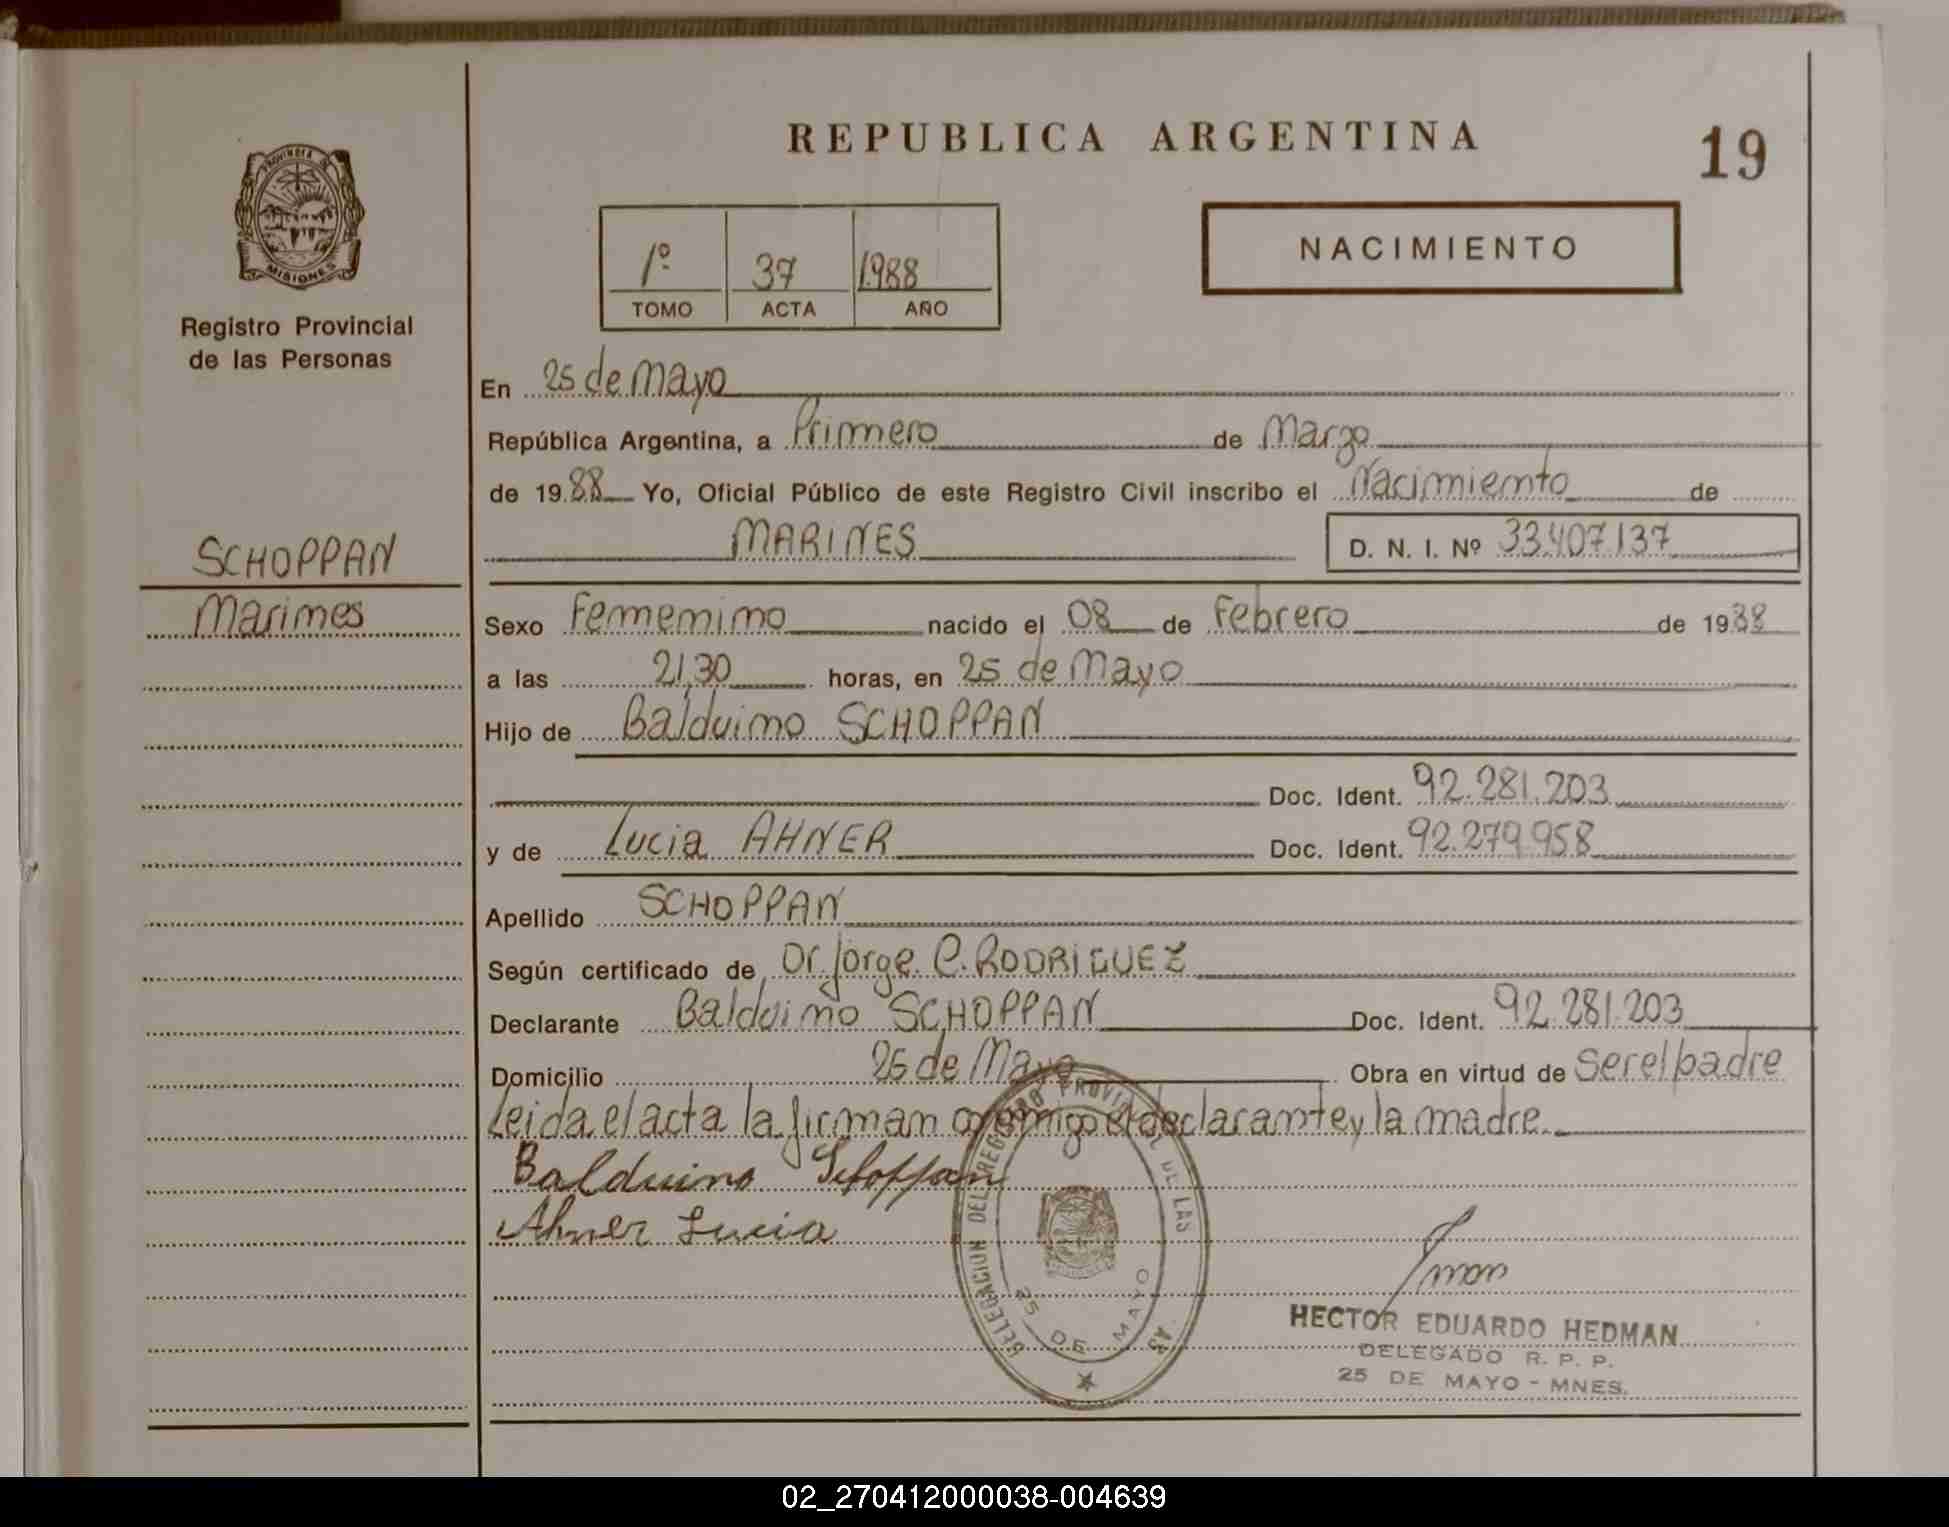 REPUBLICA ARGENTINA
19
PROVINCIA DE
MISIONES
Registro Provincial
de las Personas
1º 37 1.988
TOMO ACTA AÑO
NACIMIENTO
En 25 de Mayo
República Argentina, a Primero de Marzo
de 1988 Yo, Oficial Público de este Registro Civil inscribo el Nacimiento de
MARINES D. N. I. Nº 33.407.137
SCHOPPAN
Marines
Sexo Femenino nacido el 08 de Febrero de 1988
a las 21,30 horas, en 25 de Mayo
Hijo de Balduino SCHOPPAN
Doc. Ident. 92.281.203
y de Lucia AHNER Doc. Ident. 92.279.958
Apellido SCHOPPAN
Según certificado de Dr. Jorge C. RODRIGUEZ
Declarante Balduino SCHOPPAN Doc. Ident. 92.281.203
Domicilio 25 de Mayo Obra en virtud de ser el padre
Leida el acta la firman conmigo el declarante y la madre.
Balduino Schoppan
Ahner Lucia
DELEGACION DEL REGISTRO PROVINCIAL DE LAS
25 DE MAYO
HECTOR EDUARDO HEDMAN
DELEGADO R. P. P.
25 DE MAYO - MNES.
02_270412000038-004639